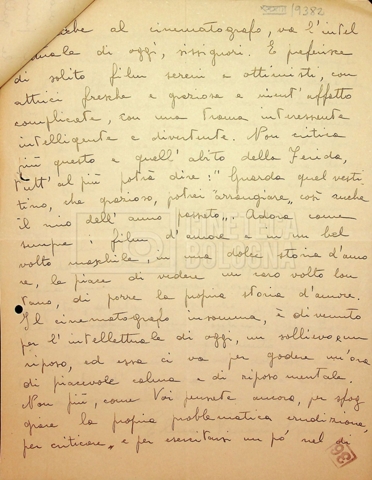 9382
al cinematografo, va l'intel
di oggi, sissignori. E preferisce
di solito film sereni e ottimisti, con
attrici fresche e graziose e nient'affatto
complicate, con una trama interessante
intelligente e divertente. Non critica
più questo e quell'abito della Ferida,
tutt'al più potrà dire: "Guarda quel vesti
tino, che grazioso, potrei "arrangiare" così anche
il mio dell'anno passato". Adora come
sempre i film d'amore e in un bel
volto maschile in una dolce storia d'amo
re, le piace di vedere un caro volto lon
tano, di porre la propria storia d'amore.
Il cinematografo insomma, è divenuto
per l'intellettuale di oggi, un sollievo e un
riposo, ed essa ci va per godere un'ora
di piacevole calma e di riposo mentale.
Non più, come Voi pensate ancora, per sfog
giare la propria problematica erudizione,
per criticare e per esercitarsi un pò nel di